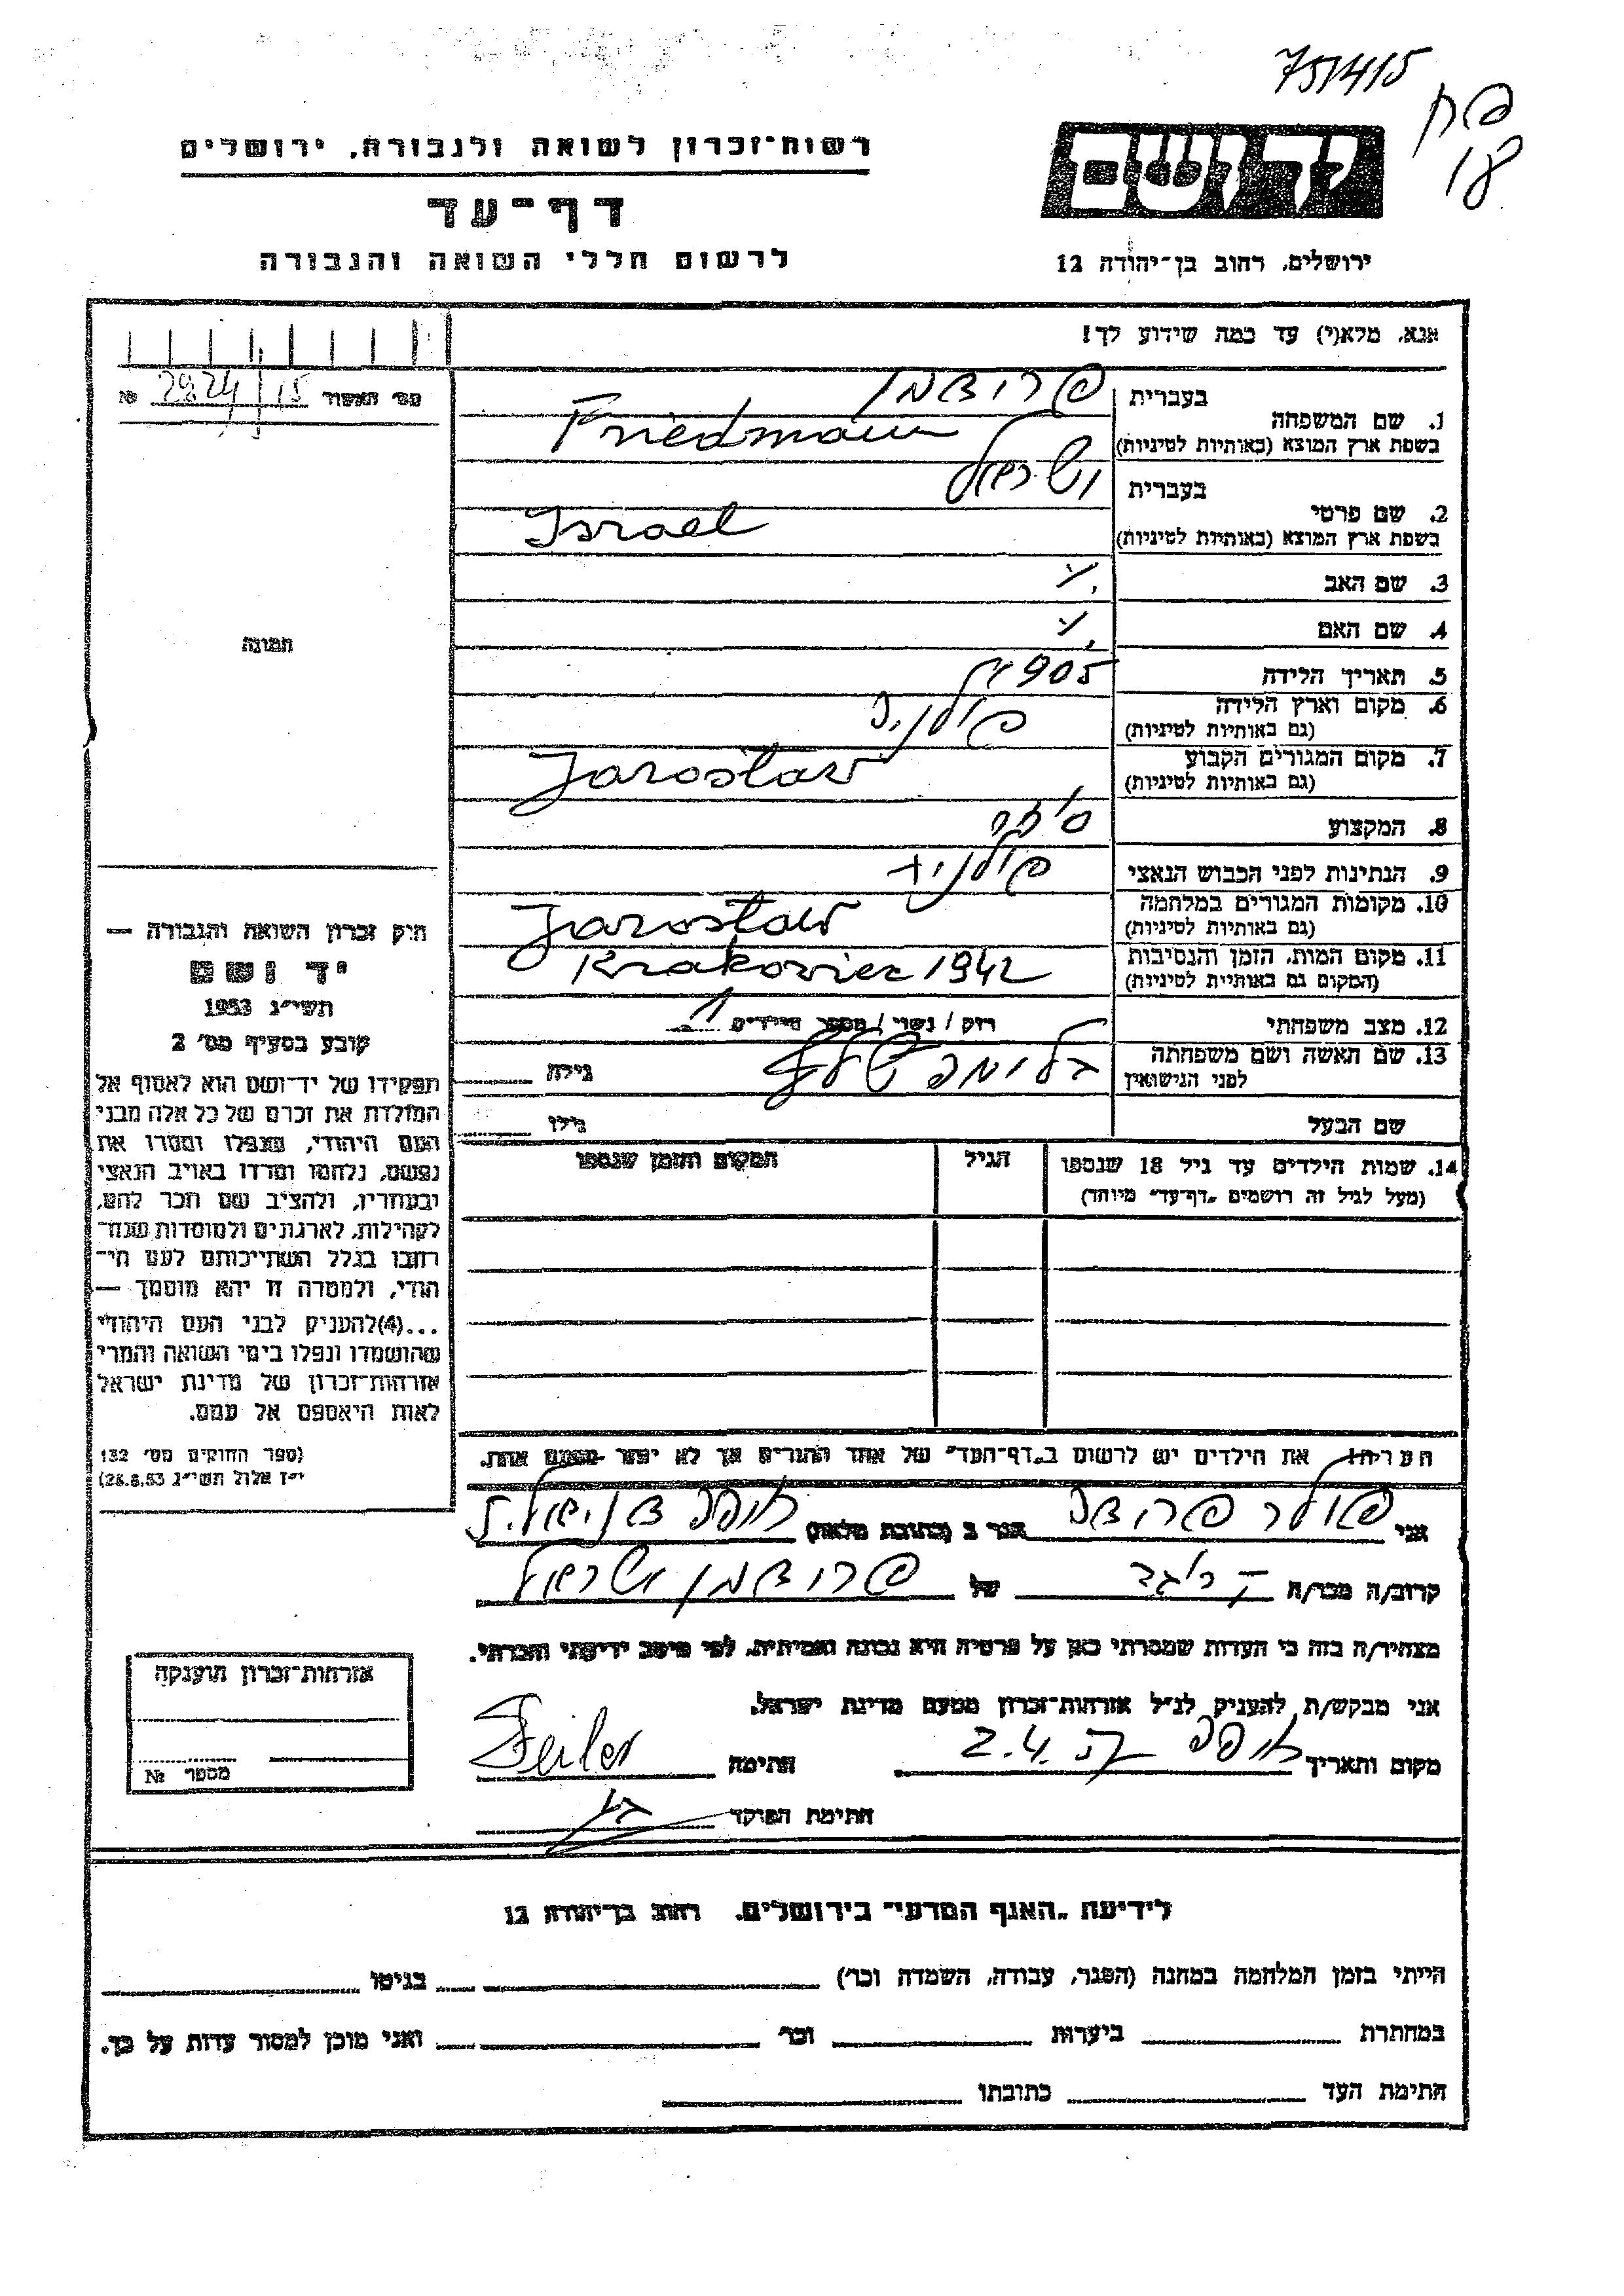 751415
פח
18
יד ושם
רשות־זכרון לשואה ולגבורה, ירושלים
דף־עד
לרשום חללי השואה והגבורה
ירושלים, רחוב בן־יהודה 12
אנא, מלא(י) עד כמה שידוע לך!
מס׳ האשור 15 2824 №
1. שם המשפחה
בעברית פרידמן
בשפת ארץ המוצא (באותיות לטיניות) Friedmann
2. שם פרטי
בעברית ישראל
בשפת ארץ המוצא (באותיות לטיניות) Israel
3. שם האב
4. שם האם
5. תאריך הלידה 1905
6. מקום וארץ הלידה פולניה
(גם באותיות לטיניות)
7. מקום המגורים הקבוע Jarosław
(גם באותיות לטיניות)
8. המקצוע סוחר
9. הנתינות לפני הכבוש הנאצי פולנית
10. מקומות המגורים במלחמה Jarosław
(גם באותיות לטיניות)
11. מקום המות, הזמן והנסיבות Krakoviec 1942
(המקום גם באותיות לטיניות)
12. מצב משפחתי רוק / נשוי / מספר הילדים 1
13. שם האשה ושם משפחתה בלימה גילה
לפני הנישואין
שם הבעל גילו
14. שמות הילדים עד גיל 18 שנספו הגיל המקום והזמן שנספו
(מעל לגיל זה רושמים „דף־עד" מיוחד)
תמונה
חוק זכרון השואה והגבורה —
יד ושם
תשי״ג 1953
קובע בסעיף מס׳ 2
תפקידו של יד־ושם הוא לאסוף אל
המולדת את זכרם של כל אלה מבני
העם היהודי, שנפלו ומסרו את
נפשם, נלחמו ומרדו באויב הנאצי
ובעוזריו, ולהציב שם וזכר להם,
לקהילות, לארגונים ולמוסדות שנח־
רבו בגלל השתייכותם לעם הי־
הודי, ולמטרה זו יהא מוסמך —
...(4)להעניק לבני העם היהודי
שהושמדו ונפלו בימי השואה והמרי
אזרחות־זכרון של מדינת ישראל
לאות היאספם אל עמם.
(ספר החוקים מס׳ 132
י״ז אלול תשי״ג 28.8.53)
הערה: את הילדים יש לרשום ב„דף־העד" של אחד ההורים אך לא יותר מפעם אחת.
אני הגר ב (כתובת מלאה) חיפה
קרוב/ה מכר/ה של פרידמן ישראל
מצהיר/ה בזה כי העדות שמסרתי כאן על פרטיה היא נכונה ואמיתית, לפי מיטב ידיעתי והכרתי.
אני מבקש/ת להעניק לנ״ל אזרחות־זכרון מטעם מדינת ישראל.
מקום ותאריך חיפה 2.4. חתימה Feiler
חתימת הפוקד
אזרחות־זכרון הוענקה
מספר №
לידיעת „האגף המדעי" בירושלים, רחוב בן־יהודה 12
הייתי בזמן המלחמה במחנה (הסגר, עבודה, השמדה וכו׳) בגיטו
במחתרת ביערות וכו׳ ואני מוכן למסור עדות על כך.
חתימת העד כתובתו